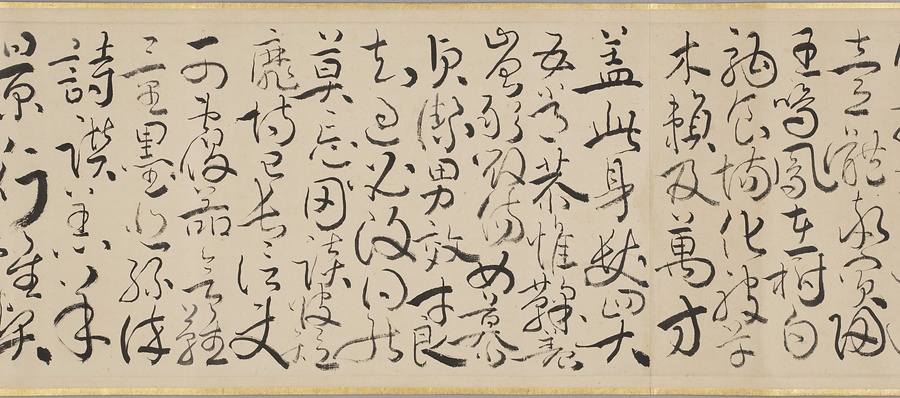 壹體率賓歸
王鳴鳳在樹白
駒食場化被草
木賴及萬方
蓋此身髮四大
五常恭惟鞠養
豈敢毀傷女慕
貞潔男效才良
知過必改得能
莫忘罔談彼短
靡恃己長信使
可覆器欲難
量墨悲絲染
詩讚羔羊
景行維賢